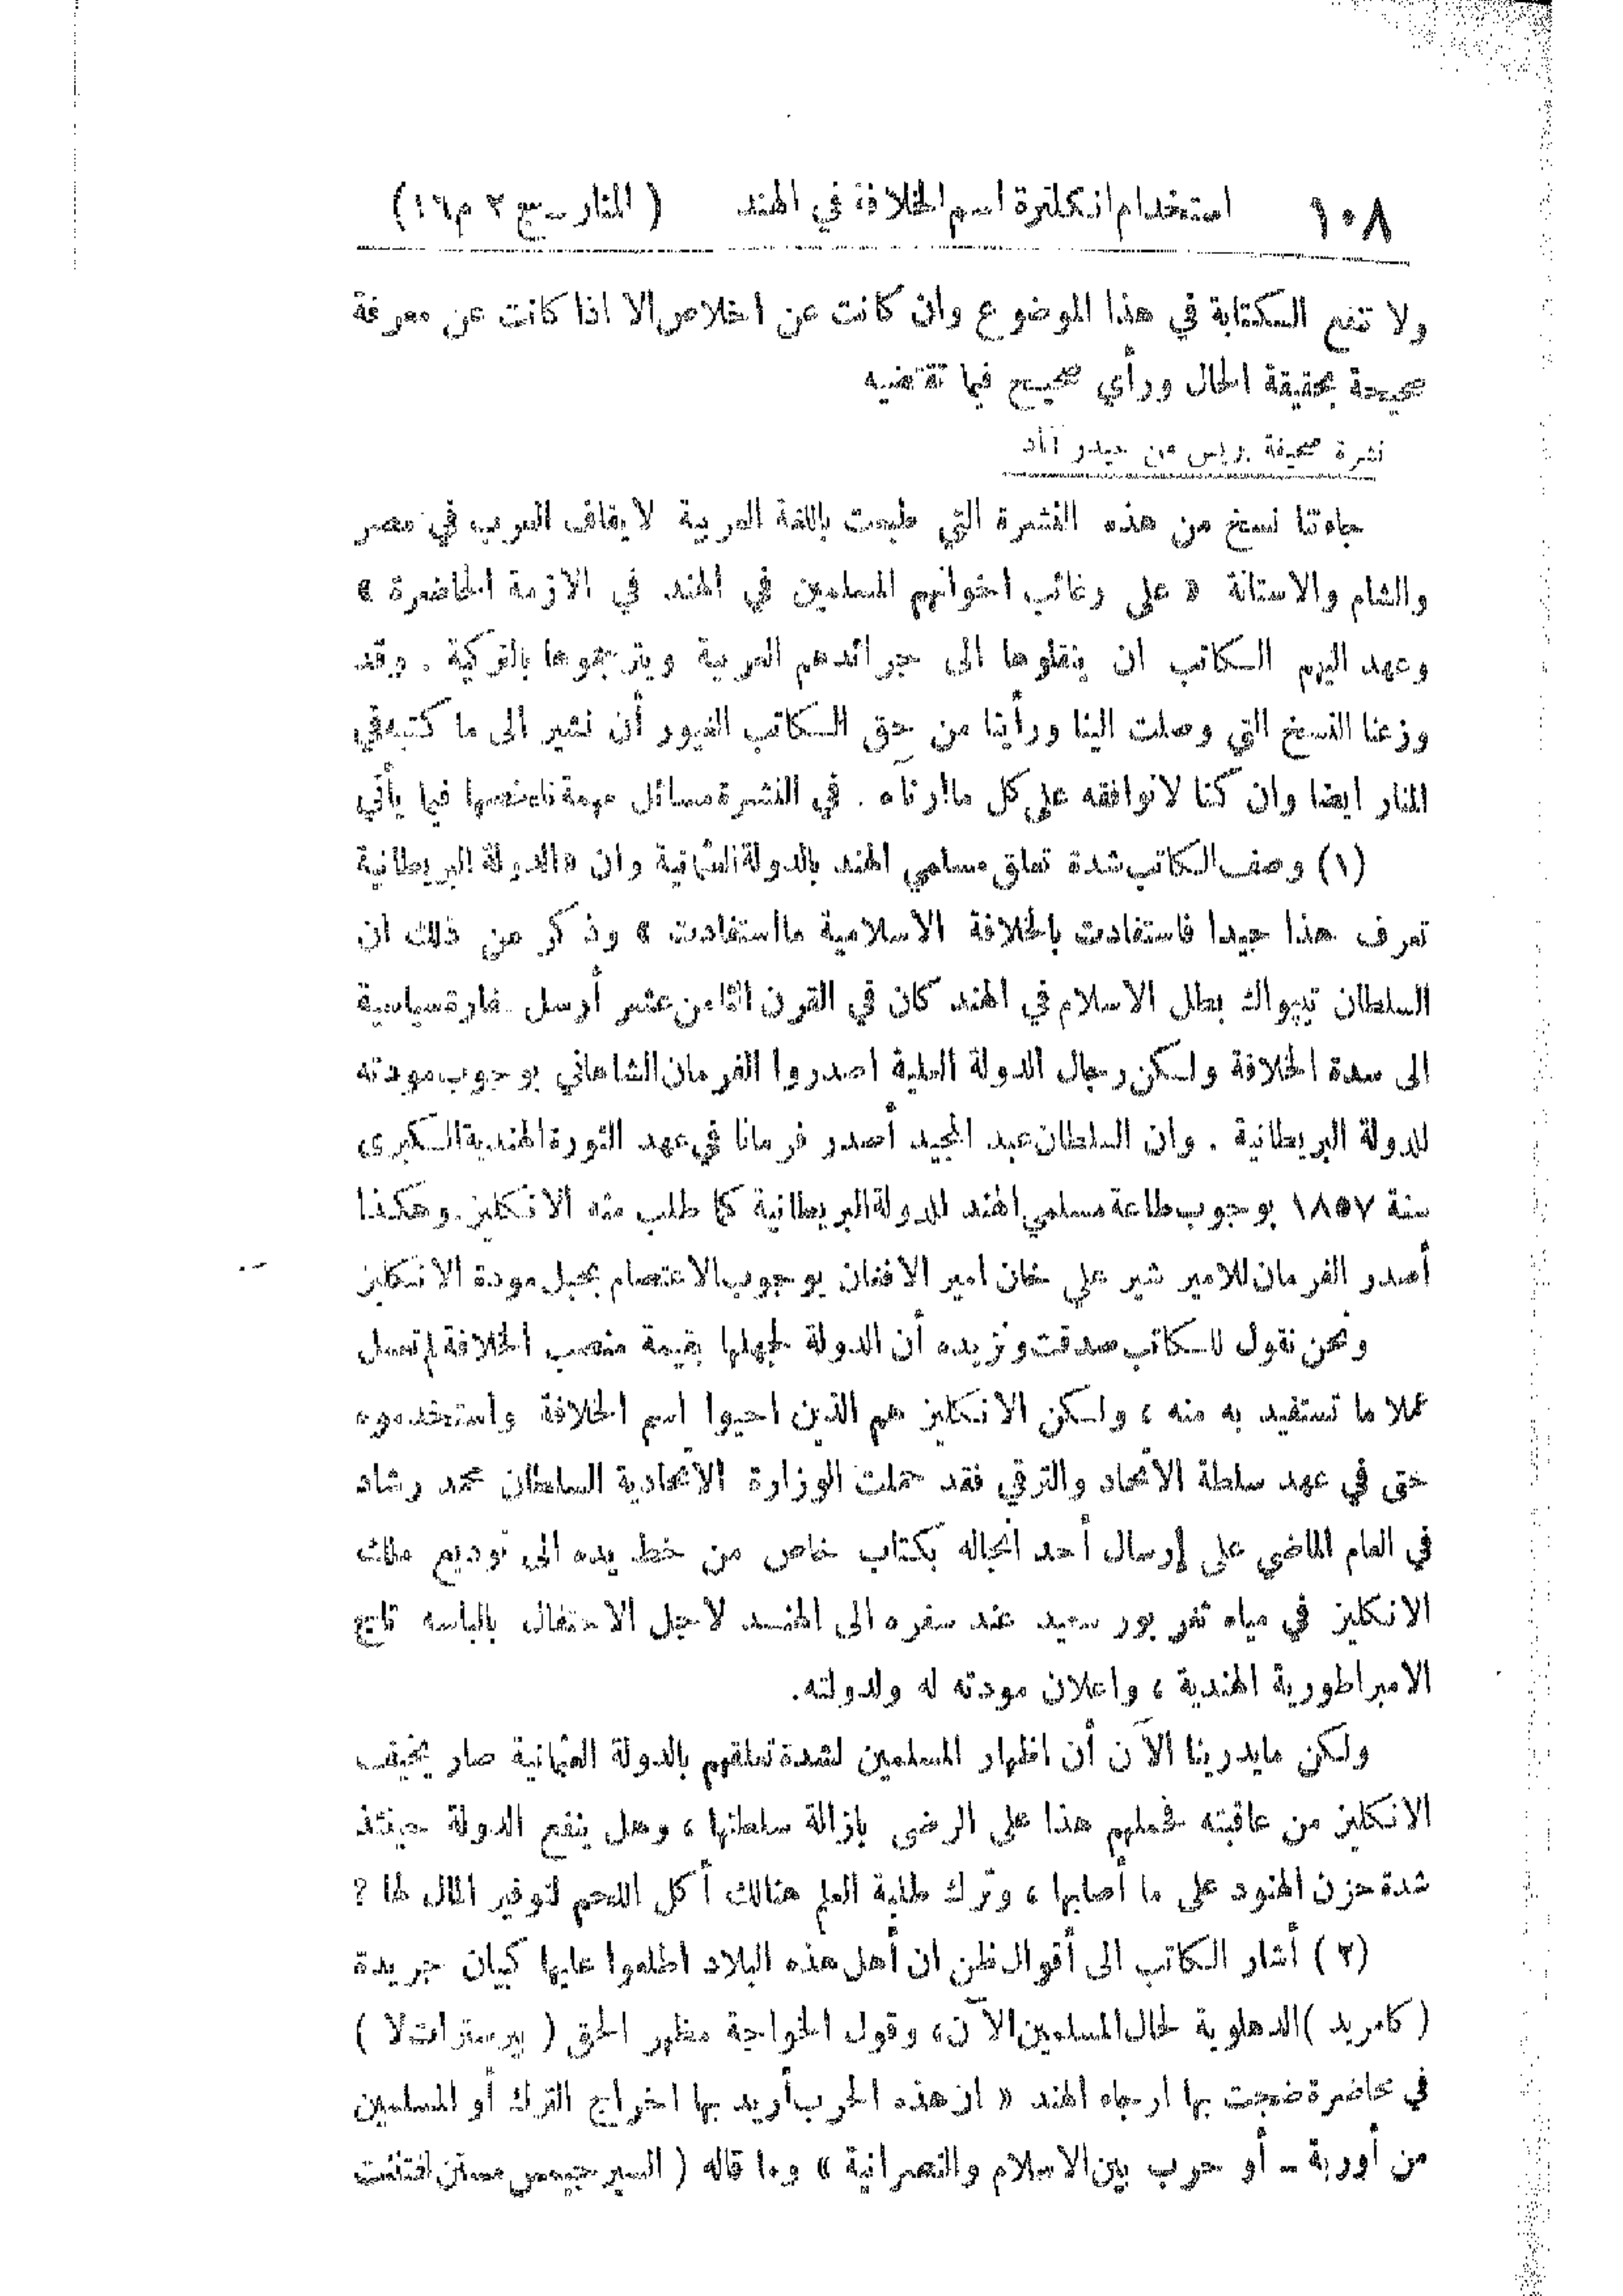 ١٠٨ استخدام انكلترة اسم الخلافة في الهند ( المنار ـ ج ٢ م ١٦ )
ولا تنفع الكتابة في هذا الموضوع وان كانت عن اخلاص الا اذا كانت عن معرفة
صحيحة بحقيقة الحال ورأي صحيح فيما تقتضيه
نشرة صحيفة بريس من حيدر آباد
جاءتنا نسخ من هذه النشرة التي طبعت باللغة العربية لايقاف العرب في مصر
والشام والاستانة « على رغائب اخوانهم المسلمين في الهند في الازمة الحاضرة »
وعهد اليهم الكاتب ان ينقلوها الى جرائدهم العربية ويترجموها بالتركية . وقد
وزعنا النسخ التي وصلت الينا ورأينا من حق الكاتب الغيور أن نشير الى ما كتبه في
المنار ايضا وان كنا لا نوافقه على كل ما ارتآه . في النشرة مسائل مهمة نلخصها فيما يأتي
(١) وصف الكاتب شدة تعلق مسلمي الهند بالدولة العثمانية وان «الدولة البريطانية
تعرف هذا جيدا فاستفادت بالخلافة الاسلامية ما استفادت » وذكر من ذلك ان
السلطان تيپو الك بطل الاسلام في الهند كان في القرن الثامن عشر أرسل سفارة سياسية
الى سدة الخلافة ولكن رجال الدولة العلية اصدروا الفرمان الشاهاني بوجوب مودته
للدولة البريطانية . وان السلطان عبد المجيد أصدر فرمانا في عهد الثورة الهندية الكبرى
سنة ١٨٥٧ بوجوب طاعة مسلمي الهند للدولة البريطانية كما طلب منه الانكليز . وهكذا
أصدر الفرمان للامير شير علي خان امير الافغان بوجوب الاعتصام بحبل مودة الانكليز
ونحن نقول للكاتب صدقت ونزيده أن الدولة لجهلها بقيمة منصب الخلافة لم تعمل
عملا ما تستفيد به منه ، ولكن الانكليز هم الذين احيوا اسم الخلافة واستخدموه
حتى في عهد سلطة الاتحاد والترقي فقد حملت الوزارة الاتحادية السلطان محمد رشاد
في العام الماضي على إرسال أحد انجاله بكتاب خاص من خط يده الى توديع ملك
الانكليز في مياه ثغر بور سعيد عند سفره الى الهند لاجل الاحتفال بالباسه تاج
الامبراطورية الهندية ، واعلان مودته له ولدولته.
ولكن مايدرينا الآن أن اظهار المسلمين لشدة تعلقهم بالدولة العثمانية صار يخيف
الانكليز من عاقبته فحملهم هذا على الرضى بازالة سلطتها ، وهل ينفع الدولة حينئذ
شدة حزن الهنود على ما أصابها ، وترك طلبة العلم هنالك أكل اللحم لتوفير المال لها ؟
(٢) أشار الكاتب الى أقوال ظن ان أهل هذه البلاد اطلعوا عليها كبيان جريدة
( كامريد ) الدهلوية لحال المسلمين الآن ، وقول الخواجة مظهر الحق ( بيرسترات لا )
في محاضرة ضجت بها ارجاء الهند « ان هذه الحرب أريد بها اخراج الترك أو المسلمين
من أوربة ـ أو حرب بين الاسلام والنصرانية » وما قاله ( السير جيمس مستن لفتننت